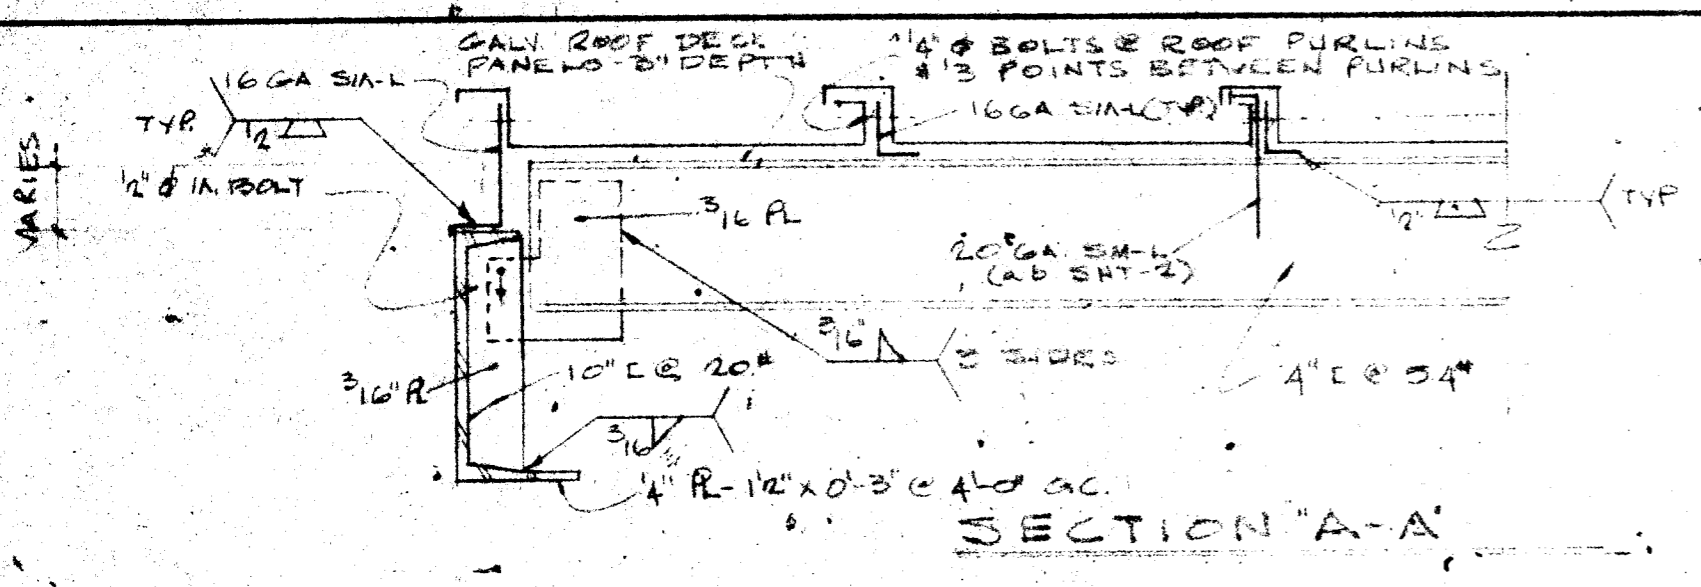 GALV. ROOF DECK
PANELS - 3" DEPTH
1/4" φ BOLTS @ ROOF PURLINS
& 3 POINTS BETWEEN PURLINS
16 GA SM-L
16 GA SM-L (TYP.)
TYP.
1/2
VARIES
1/2" φ M. BOLT
3/16 PL
20 GA. SM-L
(a b SHT-2)
1/2"
TYP
3/16"
3 SIDES
4" [ @ 5.4#
3/16" PL
10" [ @ 20#
3/16
1/4" PL - 1 1/2" x 0'-3" @ 4'-0" O.C.
SECTION "A-A"